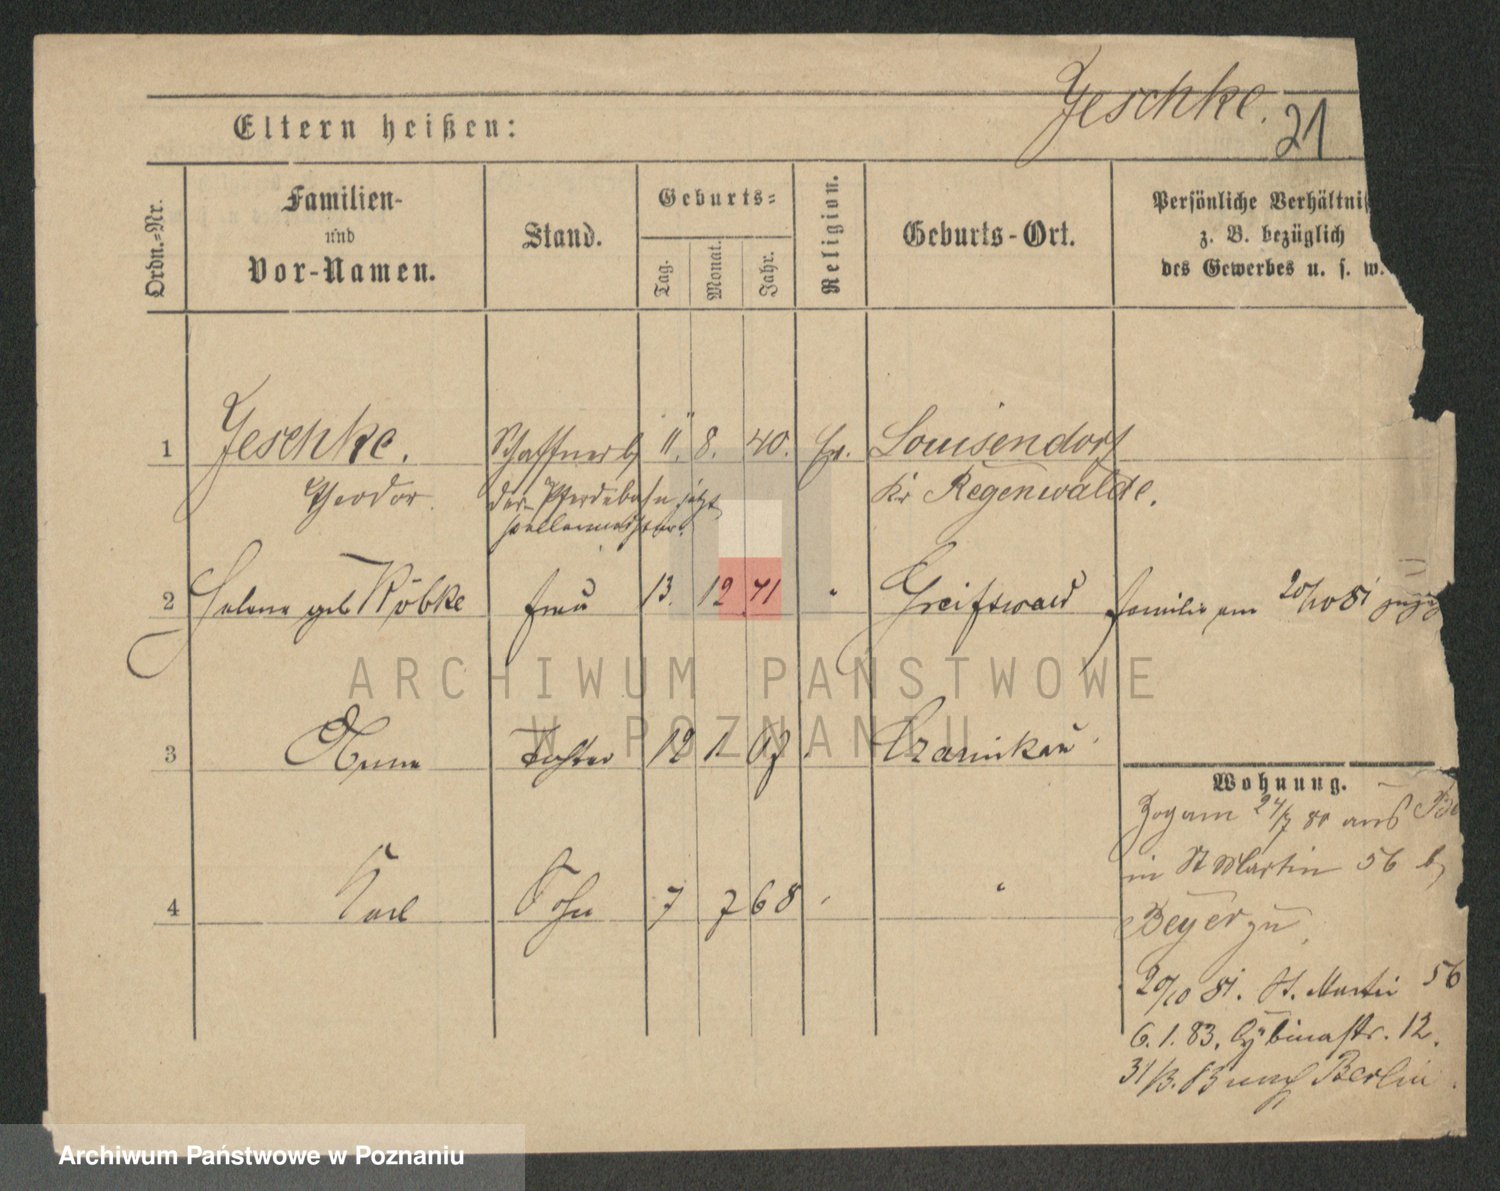 Jeschke. 21
Eltern heißen:
Ordn.-Nr.
Familien-
und
Vor-Namen.
Stand.
Geburts-
Tag.
Monat.
Jahr.
Religion.
Geburts-Ort.
Persönliche Verhältniß
z. B. bezüglich
des Gewerbes u. s. w.
1 Jeschke. Schaffner b/ 11. 8. 40. Ev. Louisendorf
Theodor. der Pferdebahn jetzt Kr Regenwalde.
2 Helene geb Köbke Frau 13. 12 41 " Greifswald Familie am 20/10 81
3 Anna Tochter 12 1 67 Czarnikau
4 Karl Sohn 7 7 68 "
Wohnung.
Zog am 24/7 80 aus
in St Martin 56 b/
Beyer zu.
20/10 81. St. Martin 56
6.1.83. Cybinastr. 12.
31/3. 83 nach Berlin.
ARCHIWUM PAŃSTWOWE
W POZNANIU
Archiwum Państwowe w Poznaniu